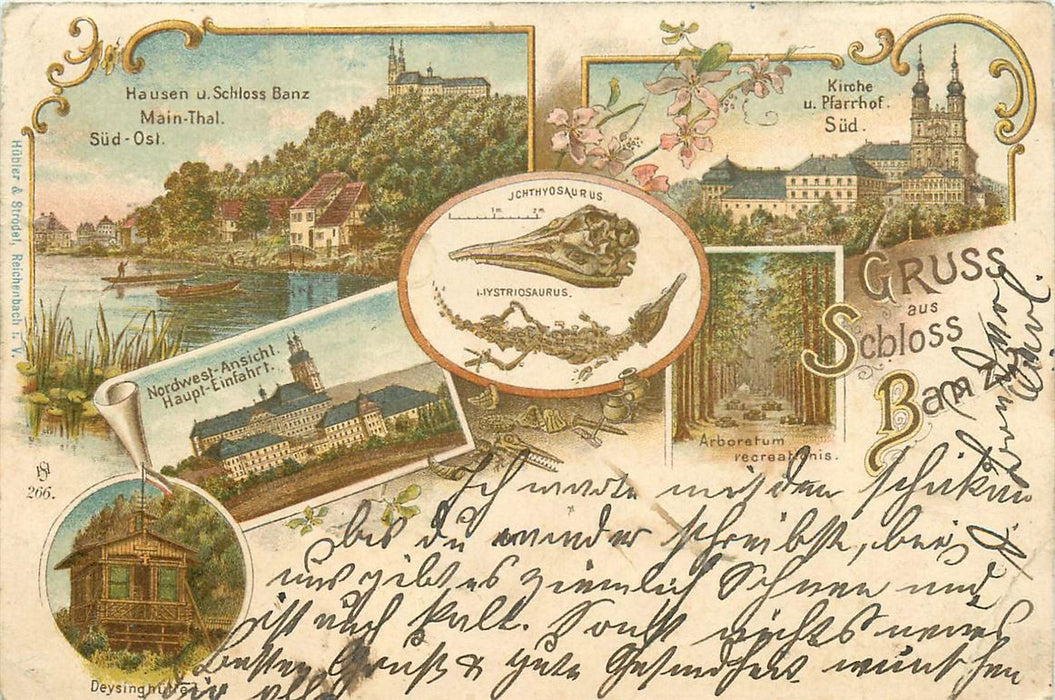 Hausen u. Schloss Banz
Main-Thal.
Süd-Ost.
Kirche
u. Pfarrhof.
Süd.
Hübler & Strödel, Reichenbach i. V.
JCHTHYOSAURUS.
1 m. 2 m.
MYSTRIOSAURUS.
GRUSS
aus
Schloss
Banz
Nordwest-Ansicht.
Haupt-Einfahrt.
Arboretum
recreationis.
266.
Deysinghütte
Ich warte mit dem schicken
bis du wieder schreibst, bei
uns gibt es ziemlich Schnee und
ist auch kalt. Sonst nichts neues
Gruß & gute Gesundheit wünschen
wir alle